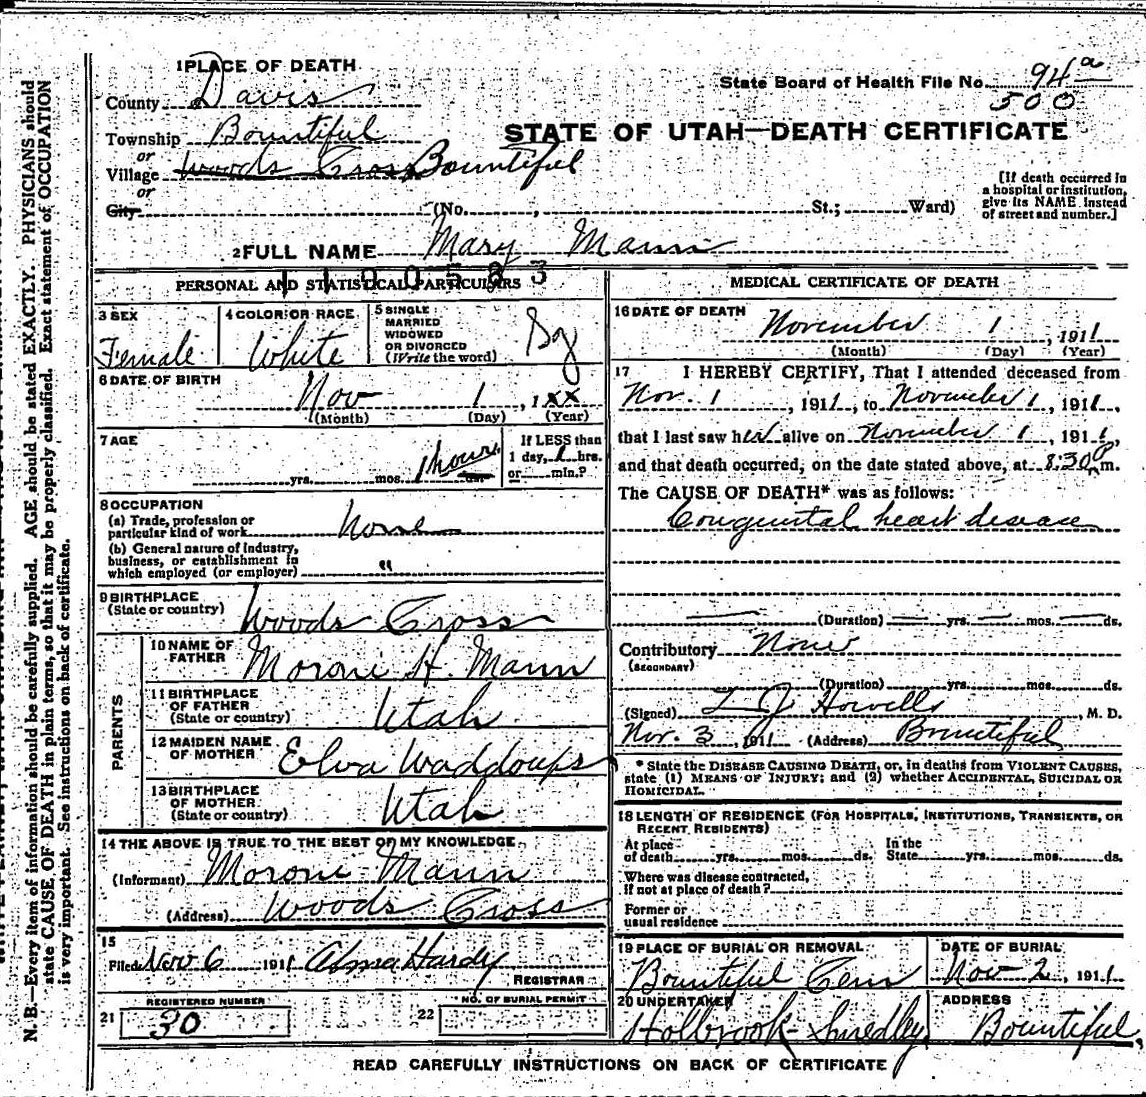 1 PLACE OF DEATH
State Board of Health File No. 94a
County Davis
500
Township Bountiful
STATE OF UTAH—DEATH CERTIFICATE
or
Village Woods Cross Bountiful
or
City (No. , St.; Ward)
[If death occurred in
a hospital or institution,
give its NAME instead
of street and number.]
2 FULL NAME Mary Mann
1100583
PERSONAL AND STATISTICAL PARTICULARS
3 SEX
Female
4 COLOR OR RACE
White
5 SINGLE
MARRIED
WIDOWED
OR DIVORCED
(Write the word)
Sg
6 DATE OF BIRTH
Nov 1, 1xx
(Month) (Day) (Year)
7 AGE
yrs. mos. 1 hours ds.
If LESS than
1 day, 1 hrs.
or min.?
8 OCCUPATION
(a) Trade, profession or
particular kind of work None
(b) General nature of industry,
business, or establishment in
which employed (or employer) "
9 BIRTHPLACE
(State or country) Woods Cross
PARENTS
10 NAME OF
FATHER Moroni H. Mann
11 BIRTHPLACE
OF FATHER
(State or country) Utah
12 MAIDEN NAME
OF MOTHER Elva Waddoups
13 BIRTHPLACE
OF MOTHER
(State or country) Utah
14 THE ABOVE IS TRUE TO THE BEST OF MY KNOWLEDGE
(Informant) Moroni Mann
(Address) Woods Cross
15
Filed Nov 6 1911 Alma Hardy
REGISTRAR
REGISTERED NUMBER
21 30
NO. OF BURIAL PERMIT
22
MEDICAL CERTIFICATE OF DEATH
16 DATE OF DEATH
November 1, 1911
(Month) (Day) (Year)
17 I HEREBY CERTIFY, That I attended deceased from
Nov. 1, 1911, to November 1, 1911,
that I last saw her alive on November 1, 1911,
and that death occurred, on the date stated above, at 8:30 p m.
The CAUSE OF DEATH* was as follows:
Congenital heart disease
(Duration) yrs. mos. ds.
Contributory None
(SECONDARY)
(Duration) yrs. mos. ds.
(Signed) L J Howells, M. D.
Nov. 3, 1911 (Address) Bountiful
* State the DISEASE CAUSING DEATH, or, in deaths from VIOLENT CAUSES,
state (1) MEANS OF INJURY; and (2) whether ACCIDENTAL, SUICIDAL OR
HOMICIDAL.
18 LENGTH OF RESIDENCE (FOR HOSPITALS, INSTITUTIONS, TRANSIENTS, OR
RECENT RESIDENTS)
At place
of death yrs. mos. ds.
In the
State yrs. mos. ds.
Where was disease contracted,
If not at place of death?
Former or
usual residence
19 PLACE OF BURIAL OR REMOVAL
Bountiful Cem
DATE OF BURIAL
Nov 2, 1911
20 UNDERTAKER
Holbrook-Smedley,
ADDRESS
Bountiful,
READ CAREFULLY INSTRUCTIONS ON BACK OF CERTIFICATE
N. B.—Every item of information should be carefully supplied. AGE should be stated EXACTLY. PHYSICIANS should
state CAUSE OF DEATH in plain terms, so that it may be properly classified. Exact statement of OCCUPATION
is very important. See instructions on back of certificate.